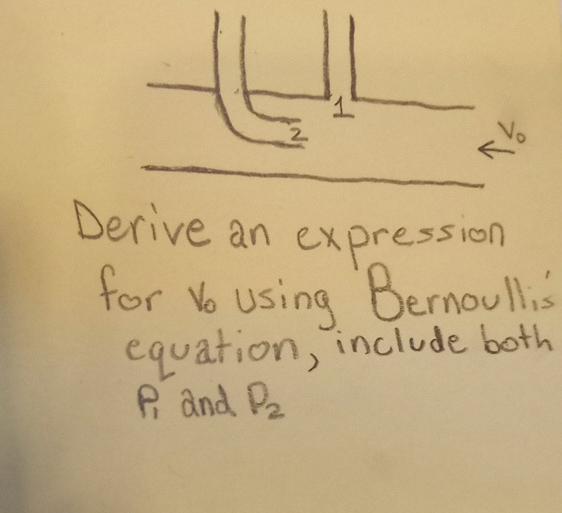 1
2
V₀
Derive an expression
for V₀ using Bernoulli's
equation, include both
P₁ and P₂